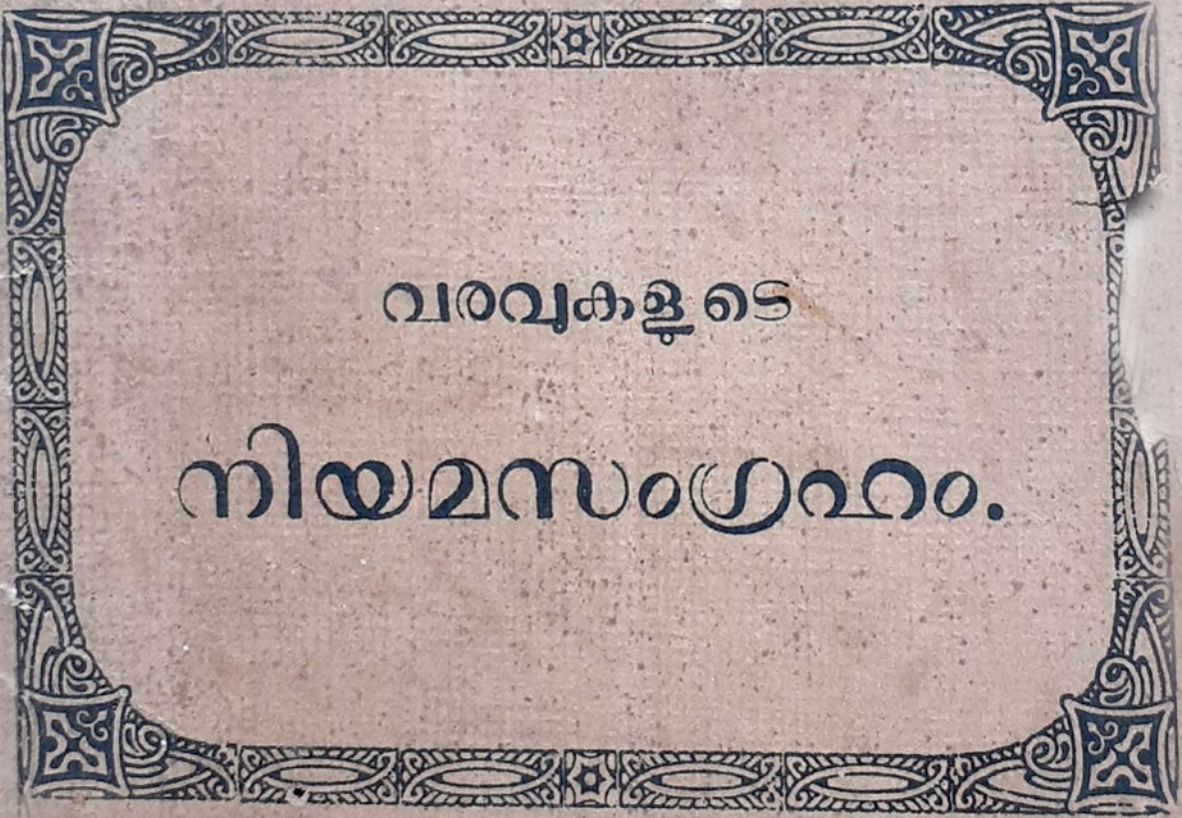 വരവുകളുടെ
നിയമസംഗ്രഹം.